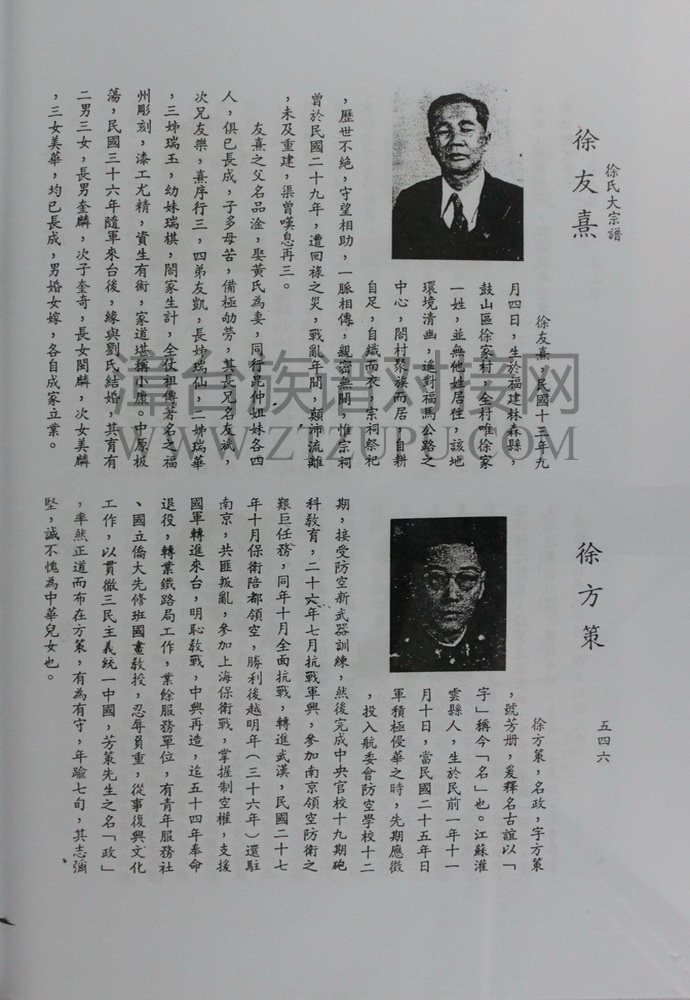 徐氏大宗譜
徐友熹
徐友熹，民國十三年九
月四日，生於福建林森縣，
鼓山區徐家村，全村唯徐家
一姓，並無他姓居住，該地
環境清幽，遙對福馬公路之
中心，閤村聚族而居，自耕
自足，自織而衣，宗祠祭祀
，歷世不絕，守望相助，一脈相傳，親密無間，惟宗祠
曾於民國二十九年，遭回祿之災，戰亂年間，顛沛流離
，未及重建，渠曾嘆息再三。
友熹之父名品淦，娶黃氏為妻，同行昆仲姐妹各四
人，俱已長成，子多母苦，備極劬勞，其長兄名友斌，
次兄友樂，熹序行三，四弟友凱，長姊瑞仙，二姊瑞華
，三姊瑞玉，幼妹瑞棋，閤家生計，全仗祖傳著名之福
州彫刻，漆工尤精，資生有術，家道堪稱小康，中原板
蕩，民國三十六年隨軍來台後，緣與劉氏結婚，其育有
二男三女，長男奎麟，次子奎奇，長女閩麟，次女美麟
，三女美華，均已長成，男婚女嫁，各自成家立業。
五四六
徐方策
徐方策，名政，字方策
，號芳册，爰釋名古誼以「
字」稱今「名」也。江蘇灌
雲縣人，生於民前一年十一
月十日，當民國二十五年日
軍積極侵華之時，先期應徵
，投入航委會防空學校十二
期，接受防空新武器訓練，然後完成中央官校十九期砲
科教育，二十六年七月抗戰軍興，參加南京領空防衛之
艱巨任務，同年十月全面抗戰，轉進武漢，民國二十七
年十月保衛陪都領空，勝利後越明年（三十六年）還駐
南京，共匪叛亂，參加上海保衛戰，掌握制空權，支援
國軍轉進來台，明恥敎戰，中興再造，迄五十四年奉命
退役，轉業鐵路局工作，業餘服務單位，有青年服務社
、國立僑大先修班國畫敎授，忍辱負重，從事復興文化
工作，以貫徹三民主義統一中國，芳策先生之名「政」
，率然正道而布在方策，有為有守，年踰七旬，其志彌
堅，誠不愧為中華兒女也。
浔台族谱对接网
WWW.ZTZUPU.COM